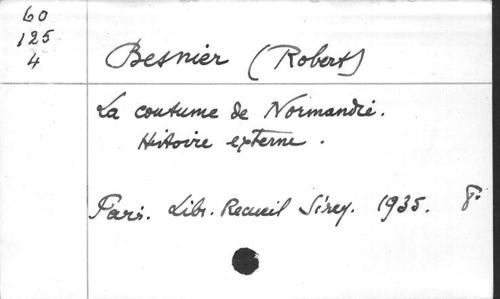 60
125
4
Besnier (Robert)
La coutume de Normandie.
Histoire externe.
Paris. Libr. Recueil Sirey. 1935. 8°